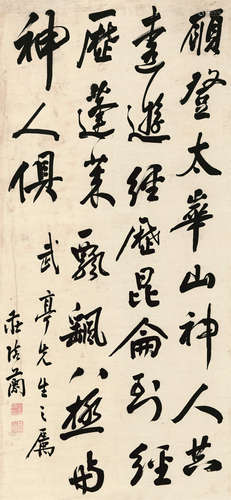 願登太華山神人共
遠遊經歷昆侖到經
歷蓬萊飄颻八極與
神人俱
武亭先生之屬
莊陔蘭